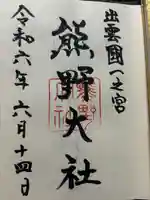 出雲國一之宮
熊野大社
令和六年六月十四日